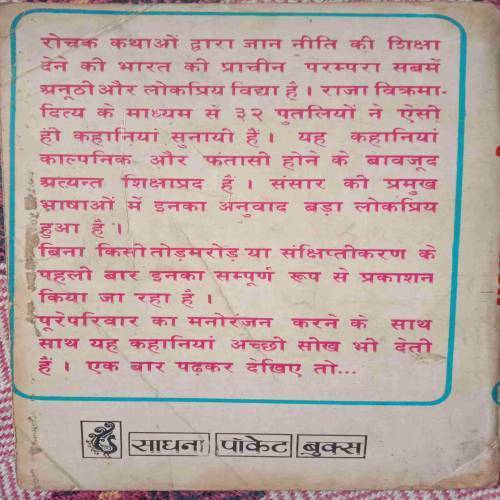 रोचक कथाओं द्वारा जान नीति की शिक्षा
देने की भारत की प्राचीन परम्परा सबमें
अनूठी और लोकप्रिय विद्या है । राजा विक्रमा-
दित्य के माध्यम से ३२ पुतलियों ने ऐसी
ही कहानियां सुनायी हैं । यह कहानियां
काल्पनिक और फंतासी होने के बावजूद
अत्यन्त शिक्षाप्रद हैं । संसार की प्रमुख
भाषाओं में इनका अनुवाद बड़ा लोकप्रिय
हुआ है ।
बिना किसी तोड़मरोड़ या संक्षिप्तीकरण के
पहली बार इनका सम्पूर्ण रूप से प्रकाशन
किया जा रहा है ।
पूरे परिवार का मनोरंजन करने के साथ
साथ यह कहानियां अच्छी सीख भी देती
हैं । एक बार पढ़कर देखिए तो...
साधना पॉकेट बुक्स